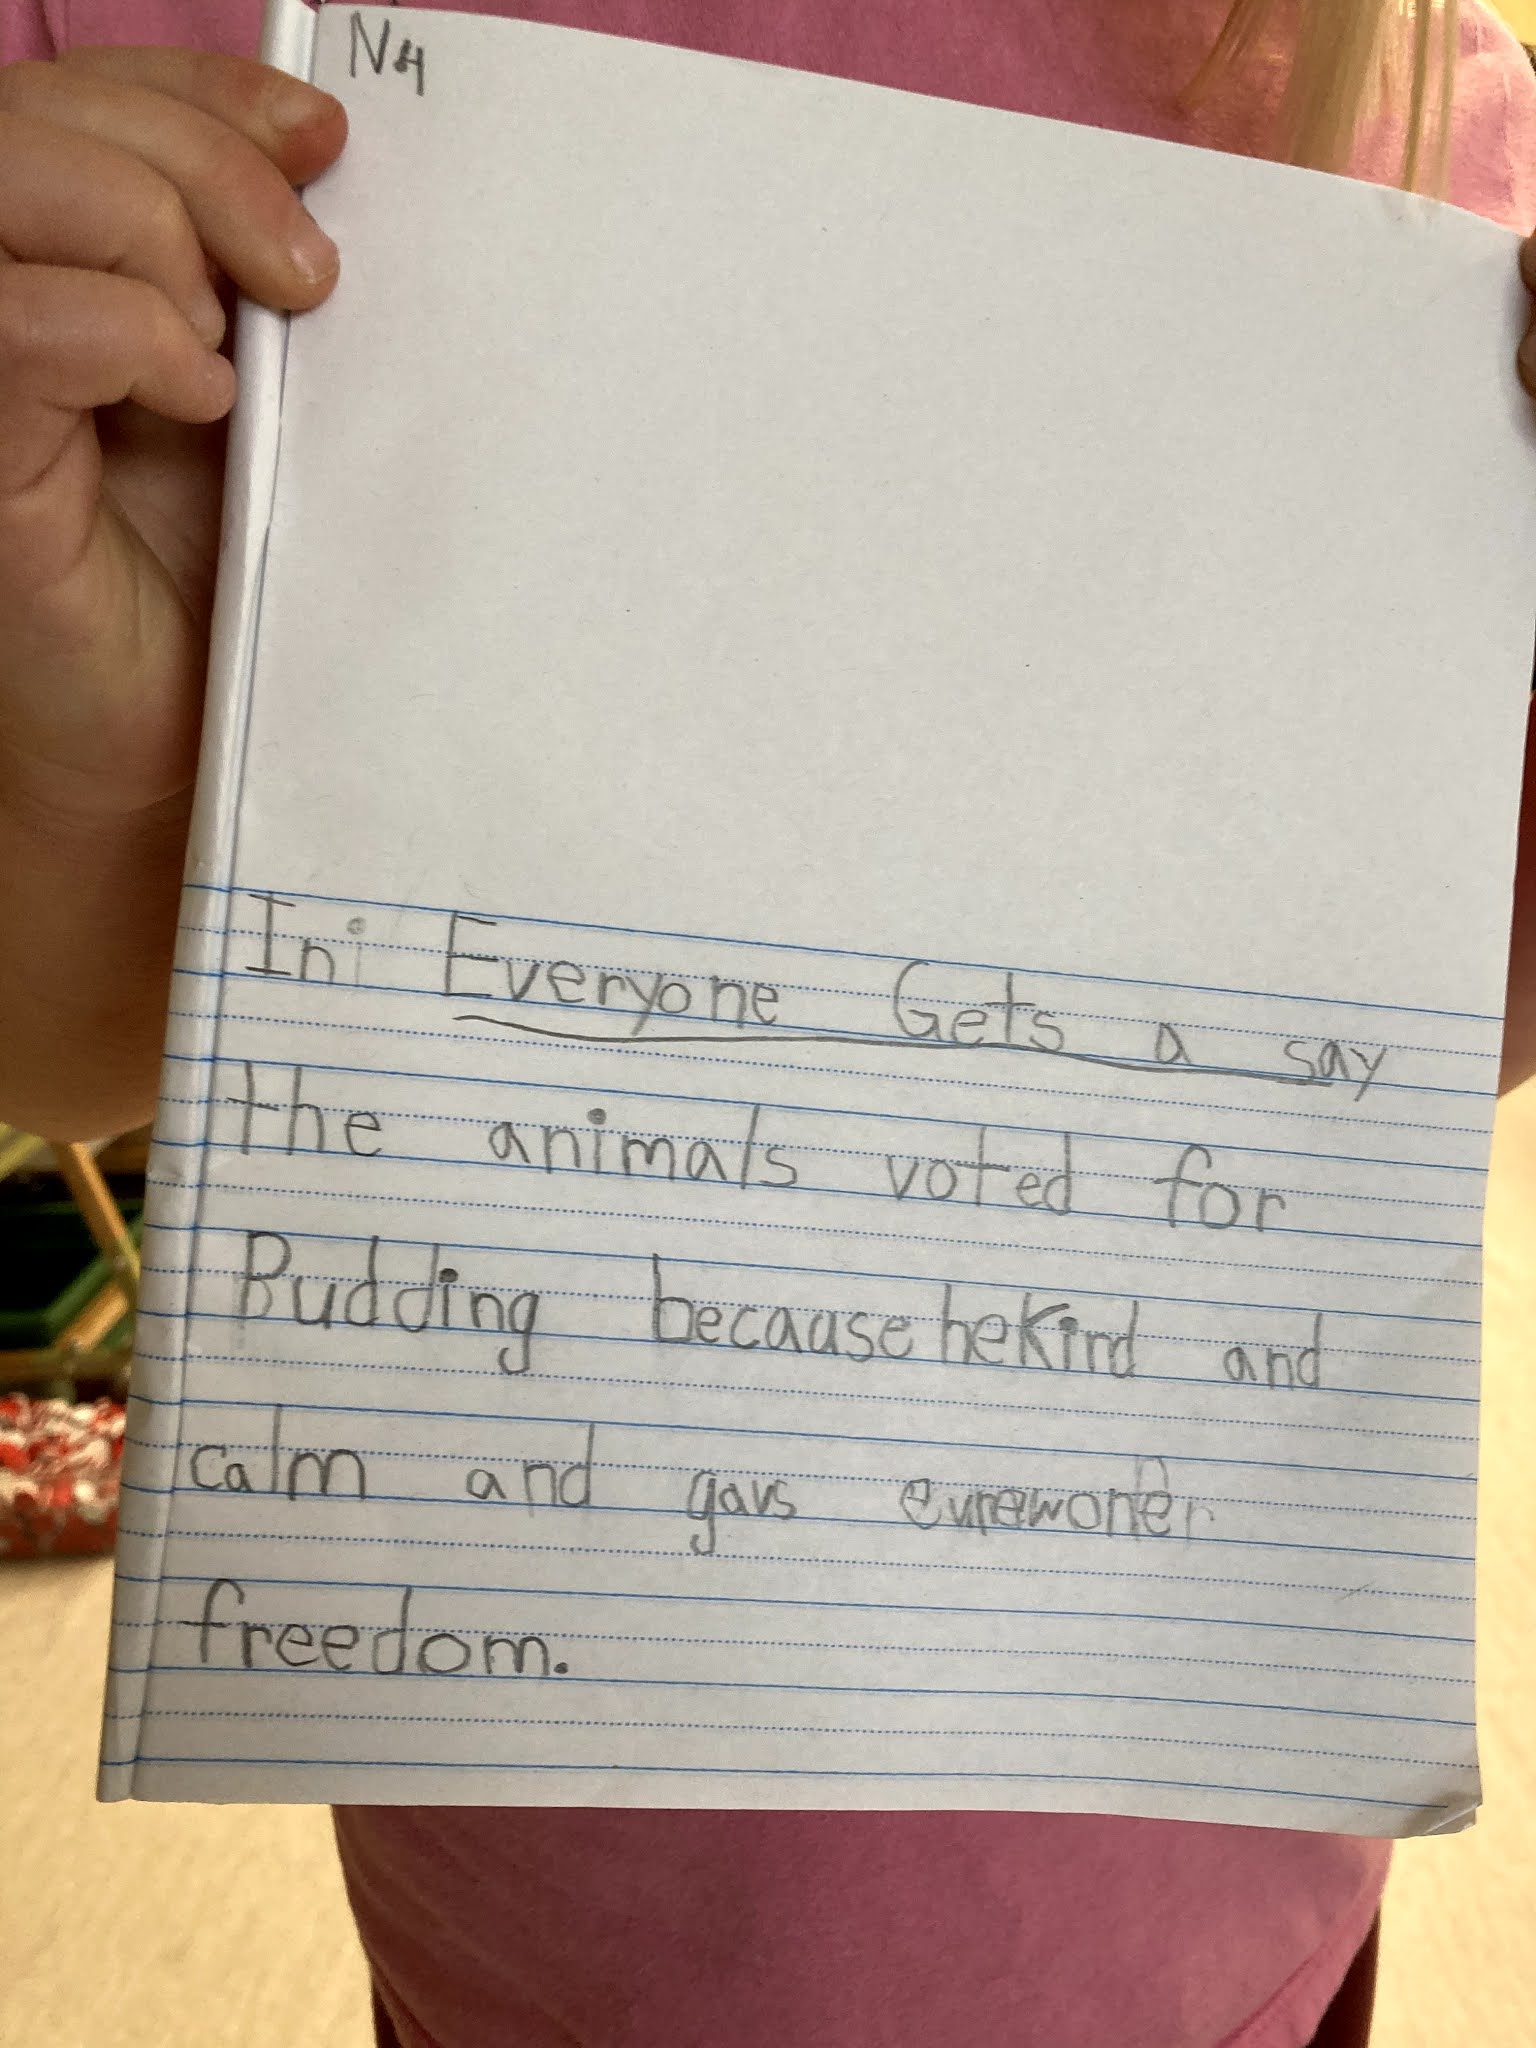 N4
In Everyone Gets a say
the animals voted for
Pudding because he kind and
calm and gavs evrewone
freedom.